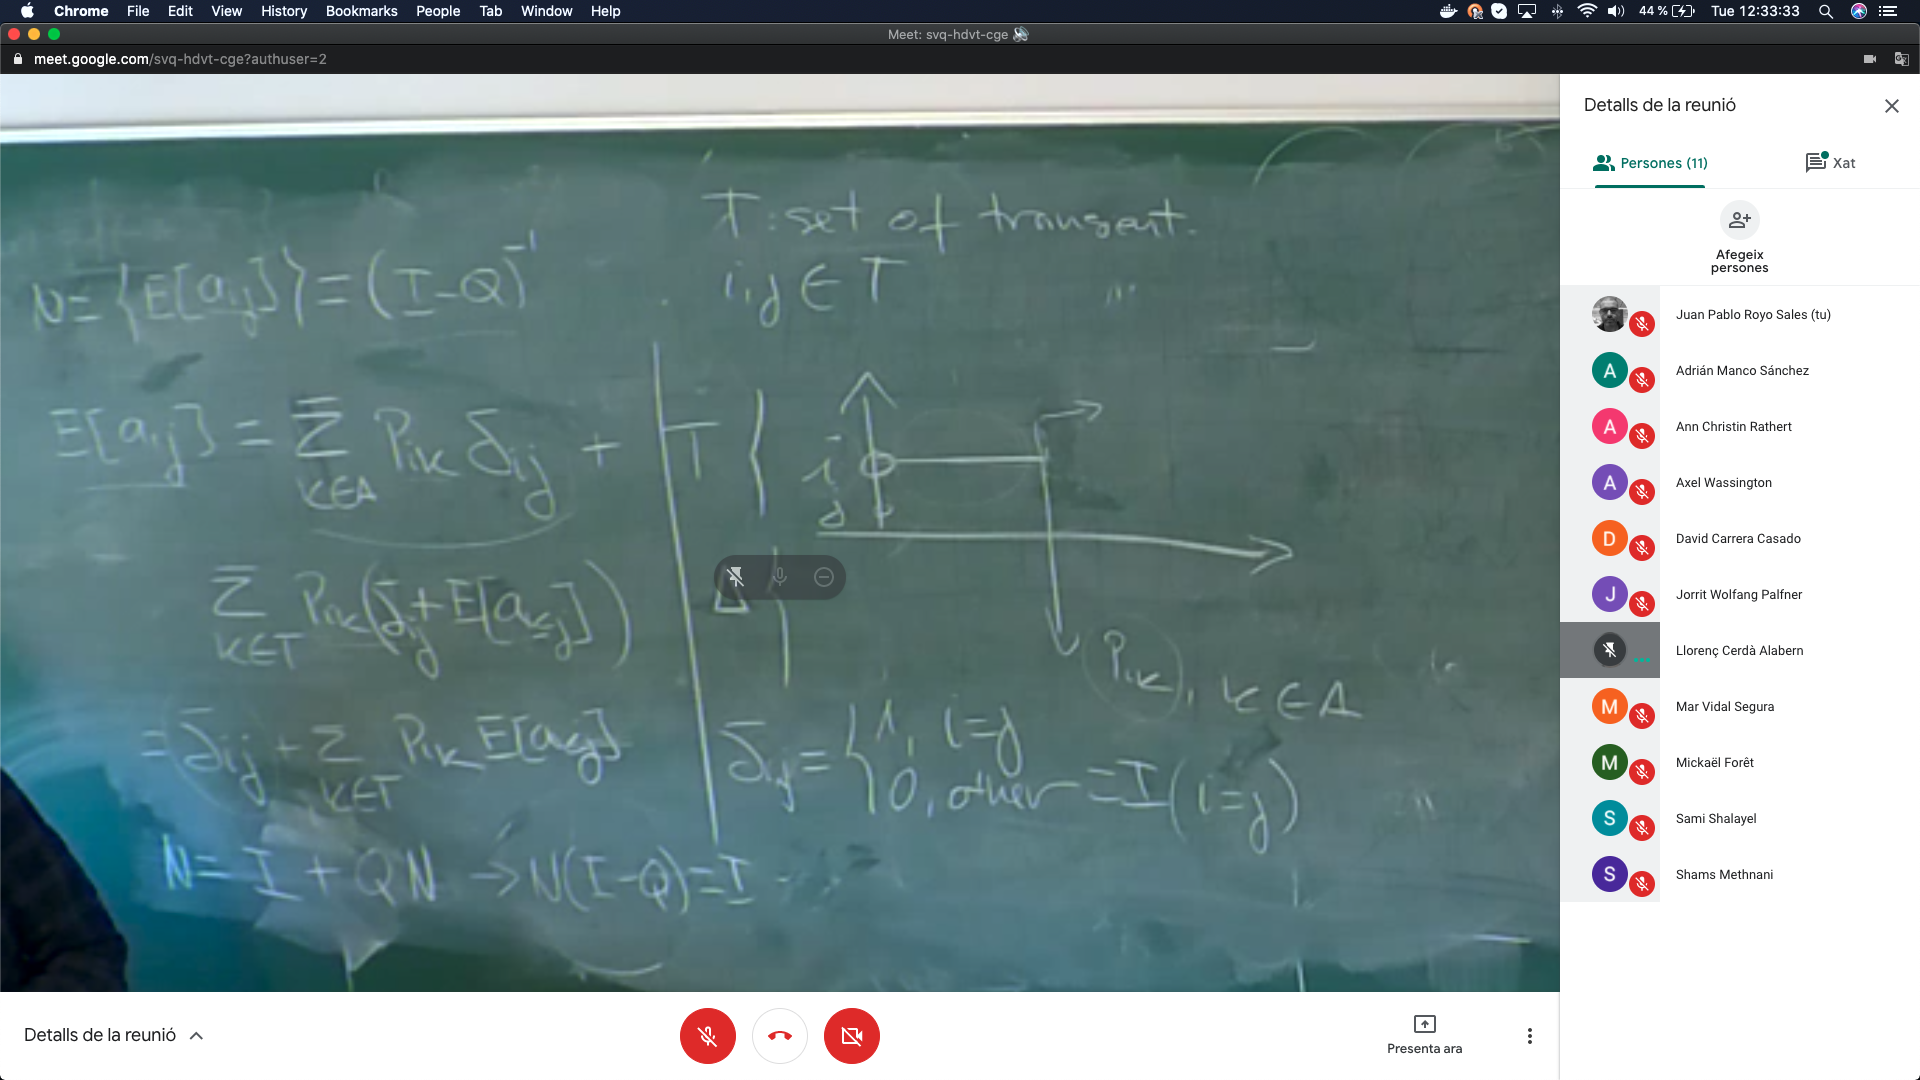 Chrome File Edit View History Bookmarks People Tab Window Help
44 % Tue 12:33:33
Meet: svq-hdvt-cge
meet.google.com/svq-hdvt-cge?authuser=2
T: set of transent.
i,j ∈ T
N={E[aij]}=(I-Q)^-1
E[aij] = Σ Pik δij +
k∈A
Σ Pik(δij+E[akj])
k∈T
=δij + Σ Pik E[akj]
k∈T
N= I + QN → N(I-Q)=I
T
i
j
Pik, k ∈ A
δij = { 1, i=j
0, other = I(i=j)
Detalls de la reunió
Persones (11)
Xat
Afegeix
persones
Juan Pablo Royo Sales (tu)
A Adrián Manco Sánchez
A Ann Christin Rathert
A Axel Wassington
D David Carrera Casado
J Jorrit Wolfang Palfner
Llorenç Cerdà Alabern
M Mar Vidal Segura
M Mickaël Forêt
S Sami Shalayel
S Shams Methnani
Detalls de la reunió
Presenta ara